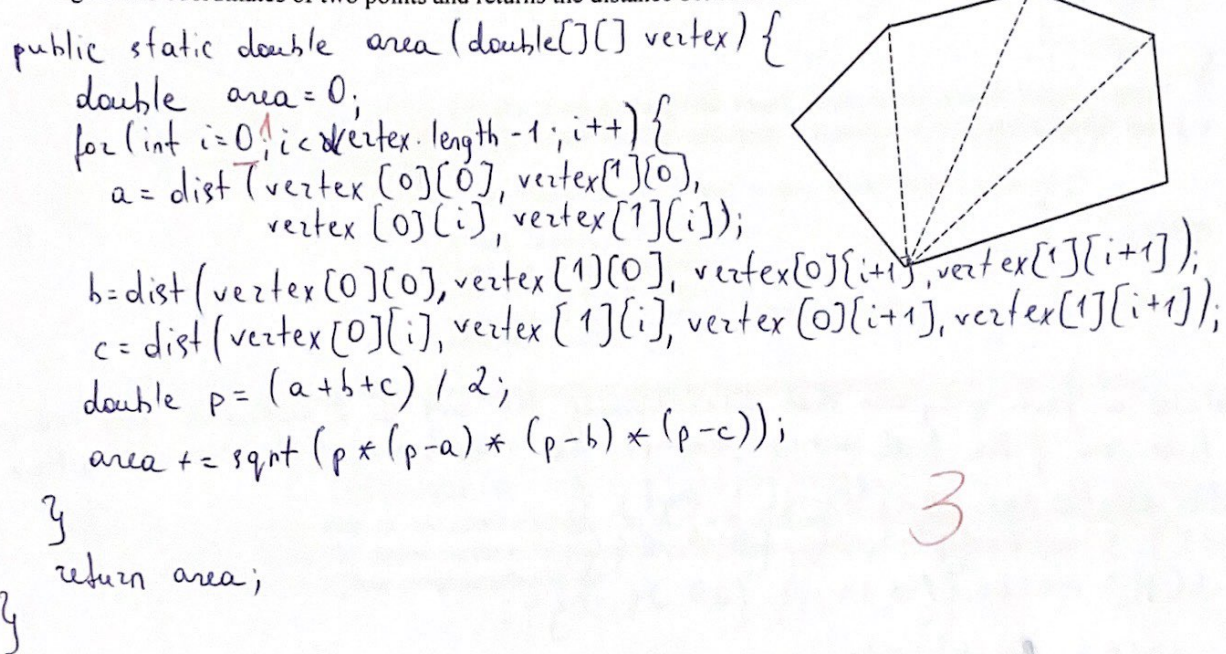 public static double area (double[][] vertex) {
double area = 0;
for (int i=0 1; i < vertex.length - 1; i++) {
a = dist (vertex [0][0], vertex[1][0],
vertex [0][i], vertex[1][i]);
b = dist (vertex [0][0], vertex [1][0], vertex[0][i+1], vertex[1][i+1]);
c = dist (vertex [0][i], vertex [1][i], vertex [0][i+1], vertex[1][i+1]);
double p = (a+b+c) / 2;
area += sqrt (p * (p-a) * (p-b) * (p-c));
3
}
return area;
}